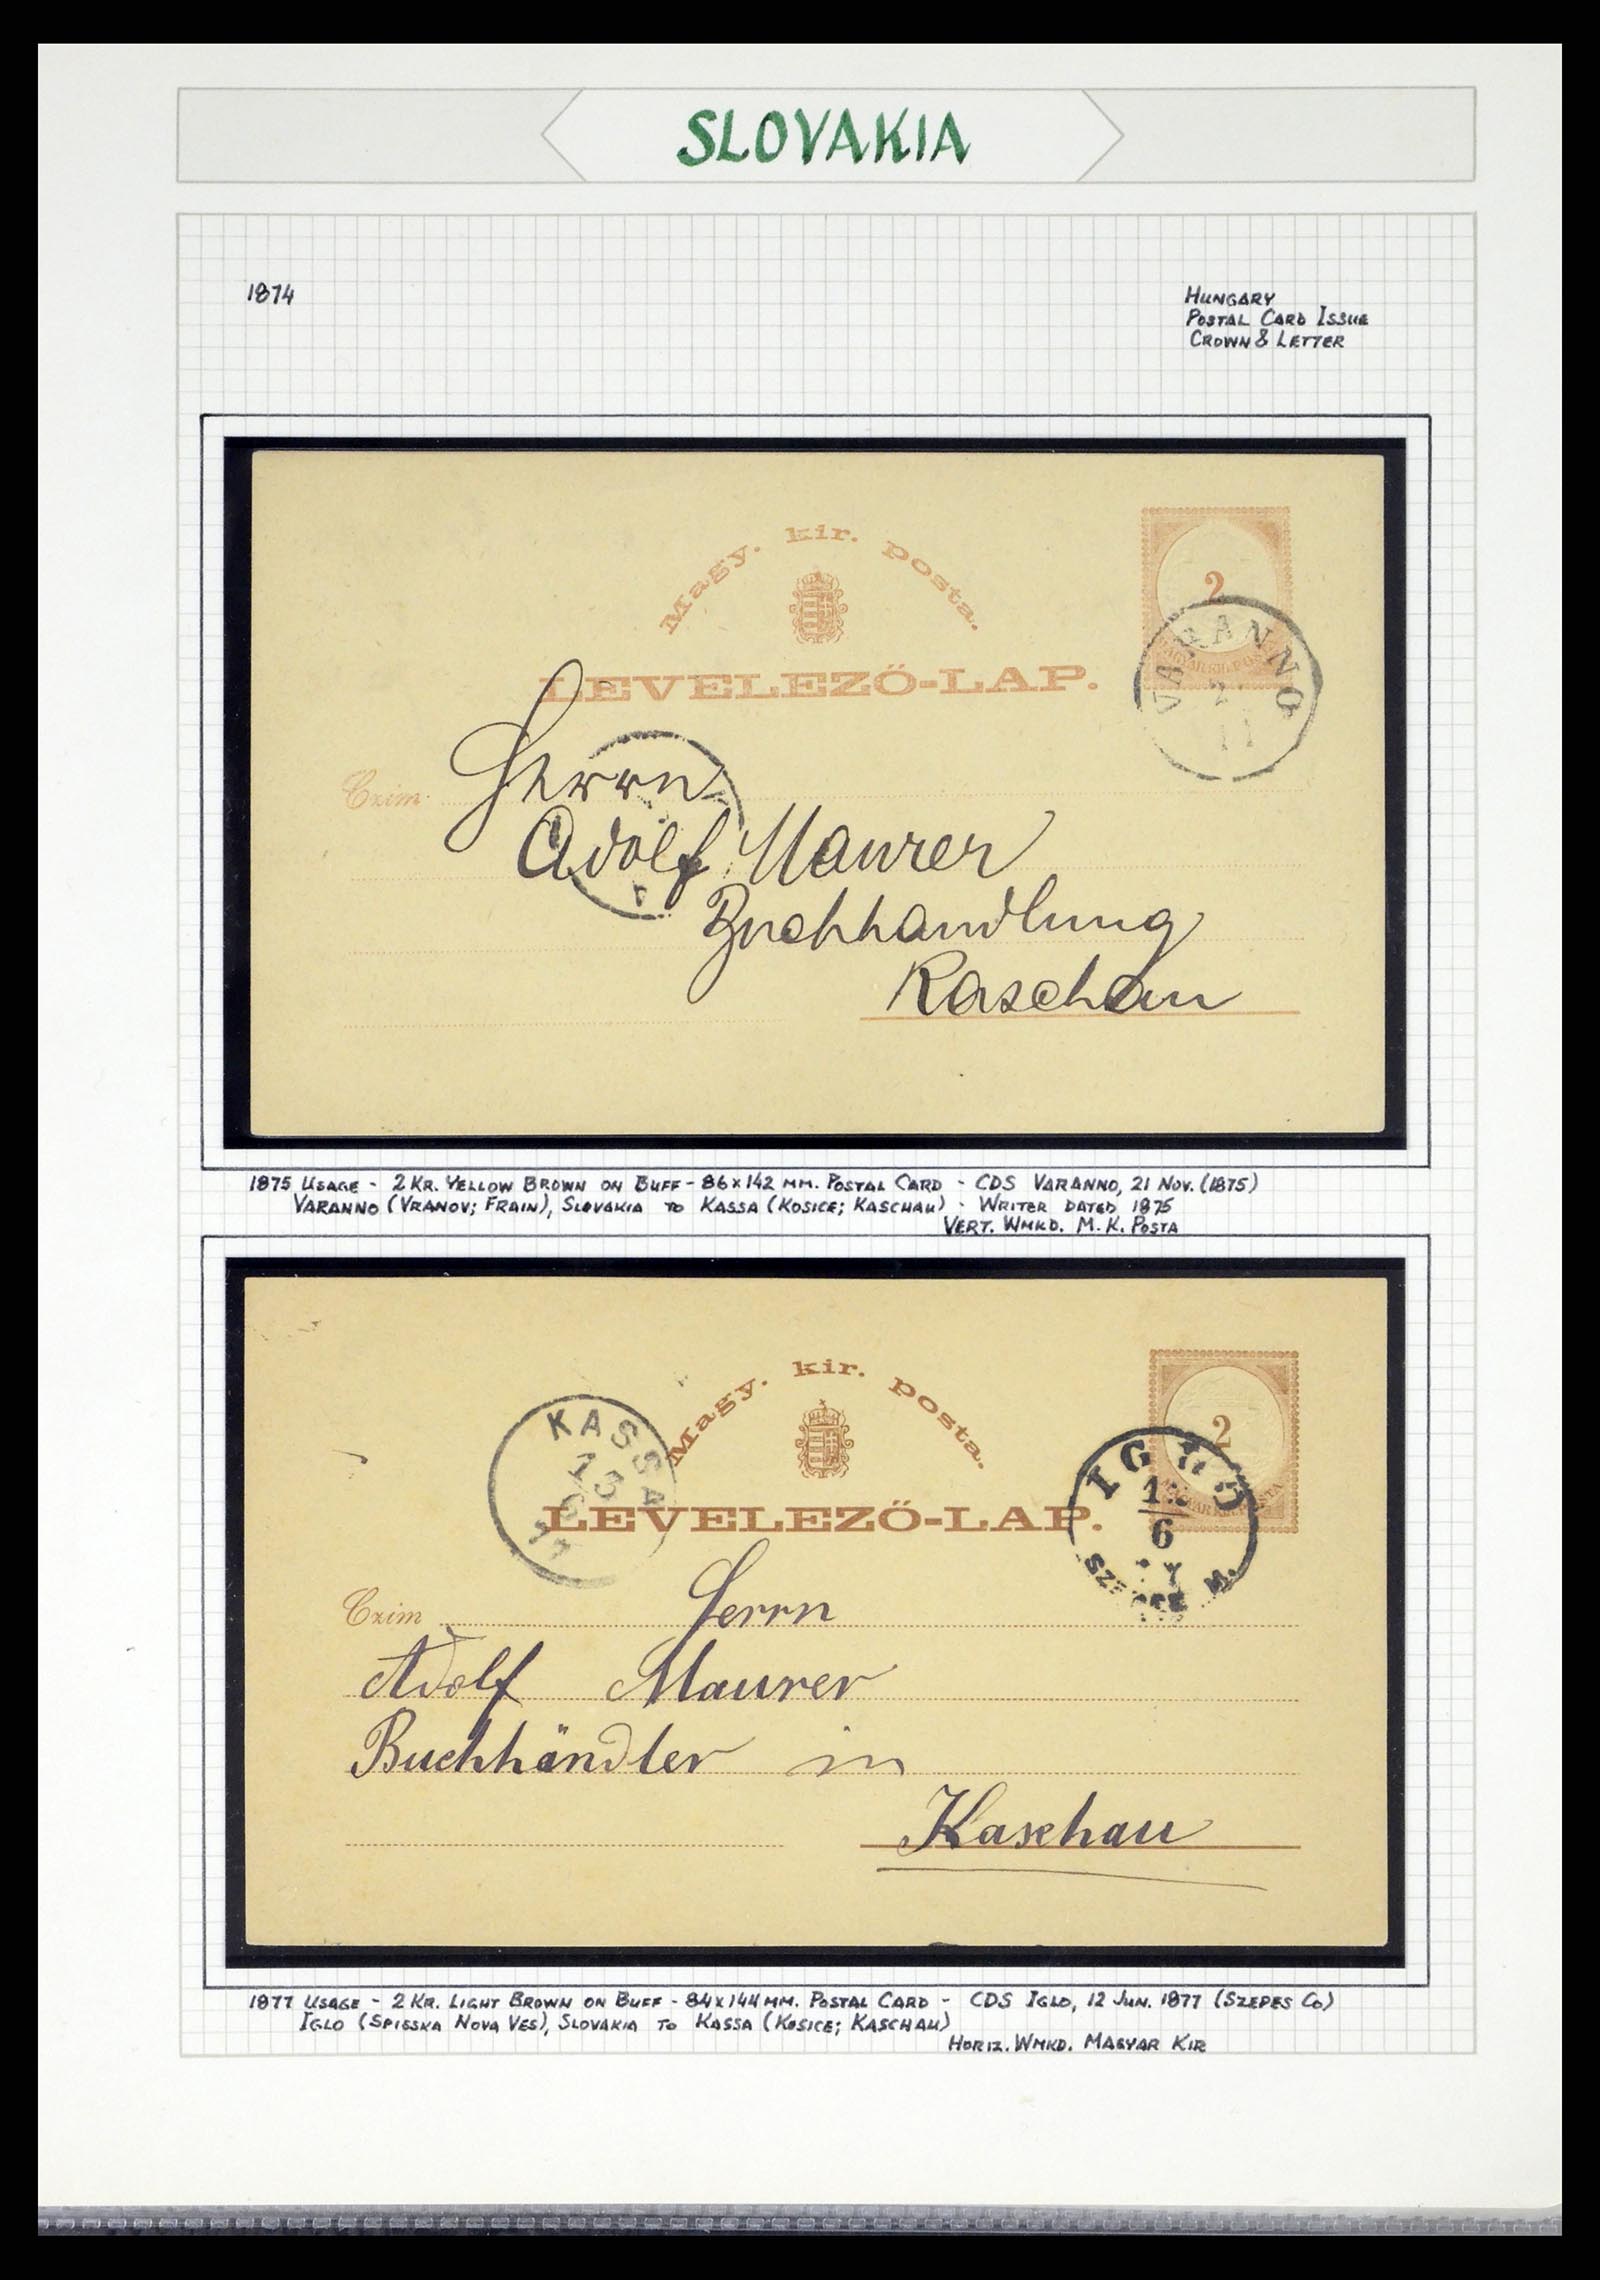 SLOVAKIA
1874
HUNGARY
POSTAL CARD ISSUE
CROWN & LETTER
Magy. kir. posta.
2
LEVELEZŐ-LAP.
VARANNO
11
Czim
Herrn
Adolf Maurer
Buchhandlung
Kaschau
1875 USAGE - 2 KR. YELLOW BROWN ON BUFF - 86 x 142 MM. POSTAL CARD - CDS VARANNO, 21 NOV. (1875)
VARANNO (VRANOV; FRAIN), SLOVAKIA TO KASSA (KOSICE; KASCHAU) - WRITER DATED 1875
VERT. WMKD. M. K. POSTA
Magy. kir. posta.
2
KASSA
LEVELEZŐ-LAP.
6
Czim
Herrn
Adolf Maurer
Buchhändler in
Kaschau
1877 USAGE - 2 KR. LIGHT BROWN ON BUFF - 84 x 144 MM. POSTAL CARD - CDS IGLO, 12 JUN. 1877 (SZEPES CO)
IGLO (SPISSKA NOVA VES), SLOVAKIA TO KASSA (KOSICE; KASCHAU)
HORIZ. WMKD. MAGYAR KIR